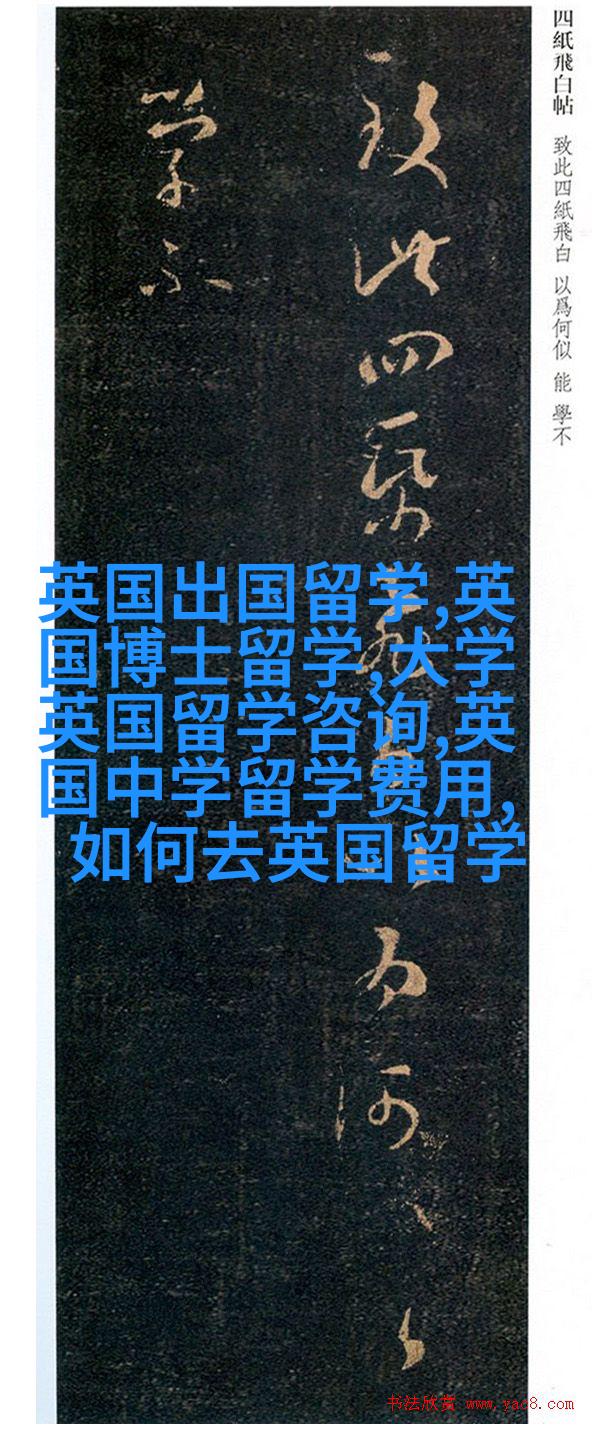 四紙飛白帖 致此四紙飛白 以爲何似 能 學不
致此四紙飛白以爲何似能
學不
英国出国留学,英
国博士留学,大学
英国留学咨询,英
国中学留学费用,
如何去英国留学
书法欣赏 www.yac8.com